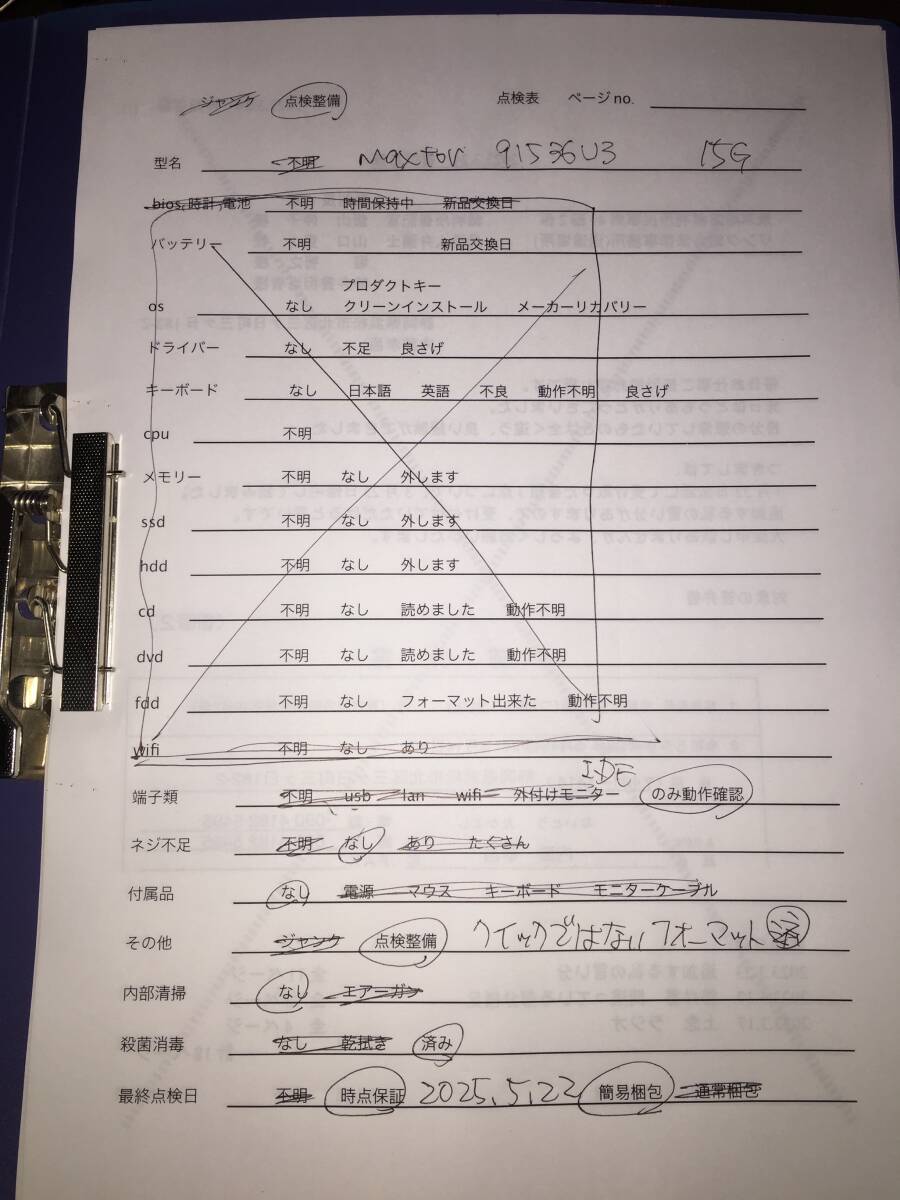 ジャンク 点検整備 点検表 ページno.
型名 不明 Maxtor 91536U3 15G
bios,時計,電池 不明 時間保持中 新品交換日
バッテリー 不明 新品交換日
プロダクトキー
os なし クリーンインストール メーカーリカバリー
ドライバー なし 不足 良さげ
キーボード なし 日本語 英語 不良 動作不明 良さげ
cpu 不明
メモリー 不明 なし 外します
ssd 不明 なし 外します
hdd 不明 なし 外します
cd 不明 なし 読めました 動作不明
dvd 不明 なし 読めました 動作不明
fdd 不明 なし フォーマット出来た 動作不明
wifi 不明 なし あり
IDE
端子類 不明 usb lan wifi 外付けモニター のみ動作確認
ネジ不足 不明 なし あり たくさん
付属品 なし 電源 マウス キーボード モニターケーブル
その他 ジャンク 点検整備 クイックではないフォーマット済
内部清掃 なし エアーガン
殺菌消毒 なし 乾拭き 済み
最終点検日 不明 時点保証 2025.5.22 簡易梱包 通常梱包